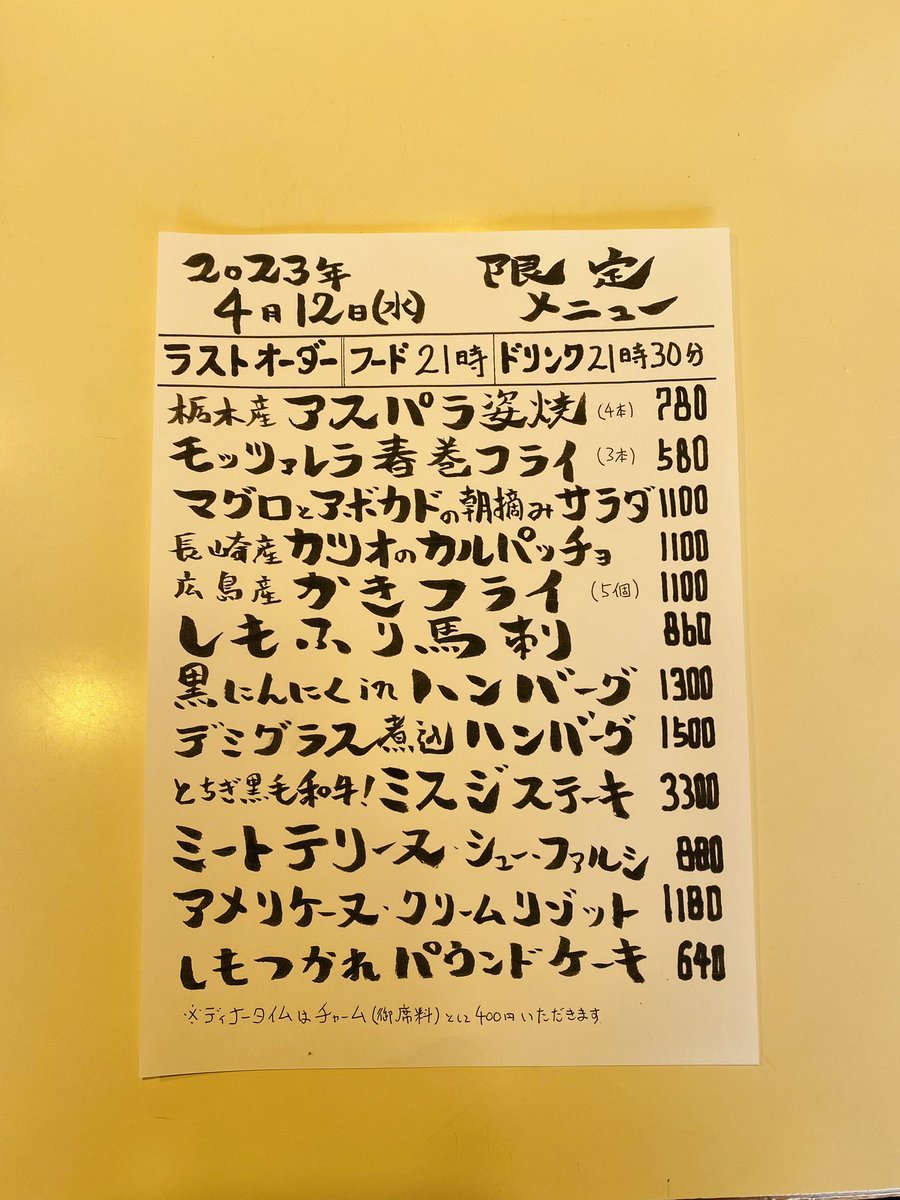 2023年 限定
4月12日(水) メニュー
ラストオーダー フード21時 ドリンク21時30分
栃木産 アスパラ姿焼 (4本) 780
モッツァレラ春巻フライ (3本) 580
マグロとアボカドの朝摘みサラダ 1100
長崎産 カツオのカルパッチョ 1100
広島産 かきフライ (5個) 1100
しもふり馬刺 860
黒にんにくinハンバーグ 1300
デミグラス煮込ハンバーグ 1500
とちぎ黒毛和牛!ミスジステーキ 3300
ミートテリーヌ・シュー・ファルシ 880
アメリケーヌ・クリームリゾット 1180
しもつかれパウンドケーキ 640
※ディナータイムはチャーム(御席料)として400円いただきます